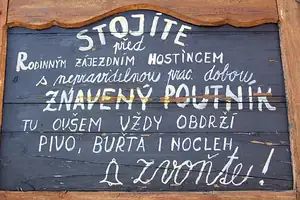 STOJÍTE
před
RODINNÝM ZÁJEZDNÍM HOSTINCEM
s nepravidelnou prac. dobou,
ZNAVENÝ POUTNÍK
TU OVŠEM VŽDY OBDRŽÍ
PIVO, BUŘTA I NOCLEH,
zvoňte!